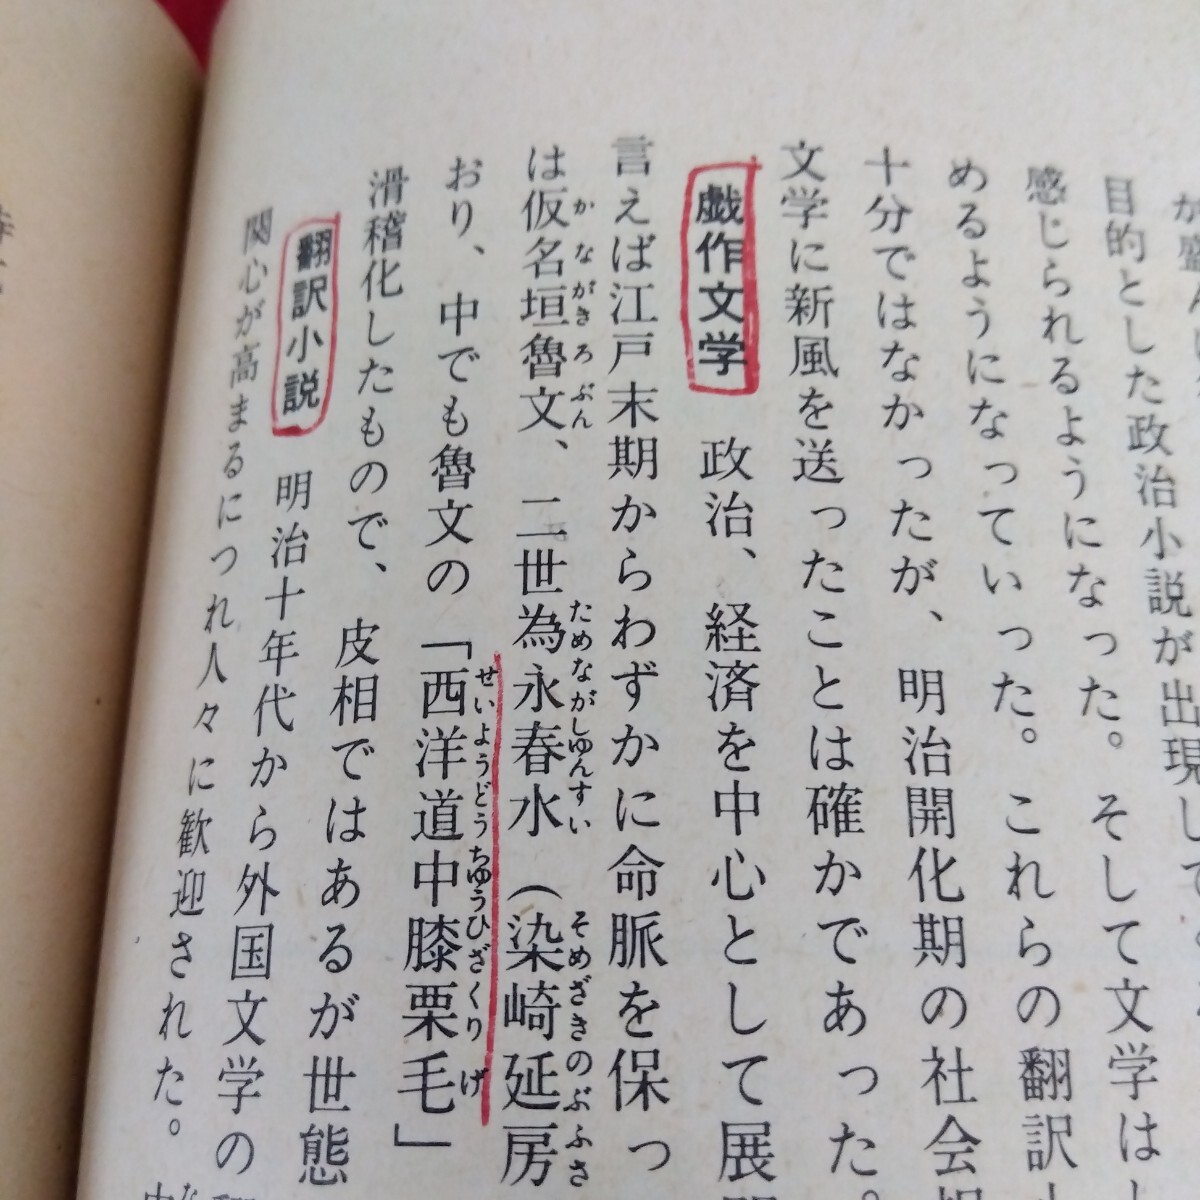 が盛んに
目的とした政治小説が出現して
感じられるようになった。そして文学は
めるようになっていった。これらの翻訳
十分ではなかったが、明治開化期の社会
文学に新風を送ったことは確かであった。
戯作文学　政治、経済を中心として展
言えば江戸末期からわずかに命脈を保っ
は仮名垣魯文、二世為永春水（染崎延房
かながきろぶん
ためながしゆんすい
そめざきのぶふさ
おり、中でも魯文の「西洋道中膝栗毛」
せいようどうちゆうひざくりげ
滑稽化したもので、皮相ではあるが世態
翻訳小説　明治十年代から外国文学の
関心が高まるにつれ人々に歓迎された。